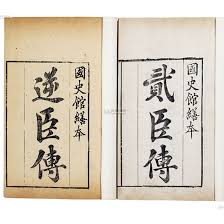 國史館繕本
貳臣傳
國史館繕本
逆臣傳